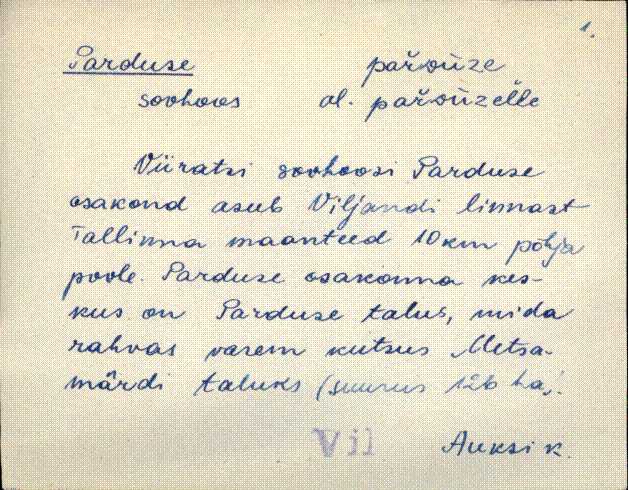 1.
Parduse păřᴅùze
sovhoos al. păřᴅùzelle
Viiratsi sovhoosi Parduse
osakond asub Viljandi linnast
Tallinna maanteed 10 km põhja
poole. Parduse osakonna kes-
kus on Parduse talus, mida
rahvas varem kutsus Metsa-
märdi taluks (suurus 126 ha).
Vil Auksi k.